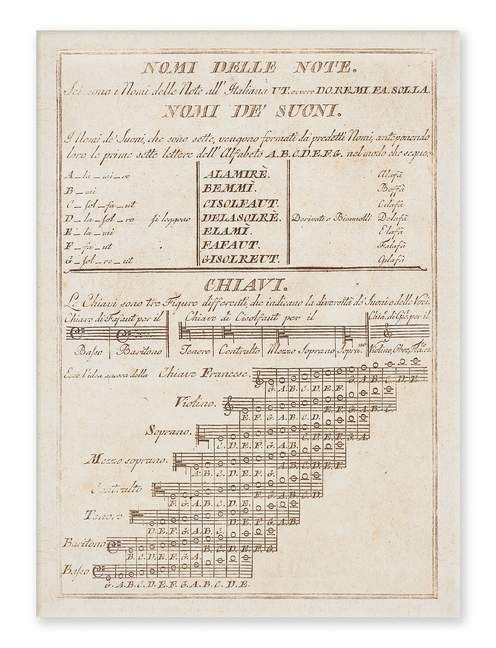 NOMI DELLE NOTE.
Sei sono i Nomi delle Note all' Italiana UT. ovvero DO.RE.MI FA.SOL.LA.
NOMI DE' SUONI.
I Nomi de' Suoni, che sono sette, vengono formati da predetti Nomi, anteponendo
loro le prime sette lettere dell' Alfabeto A.B.C.D.E.F.G. nel modo che segue,
A_la_mi_re ALAMIRÈ. Alafà
B_mi BEMMÌ. Beffà
C_sol_fa_ut CISOLFAUT. Cilafà
D_la_sol_re si leggono DELASOLRÈ. Derivati e Bismolli Delafà
E_la_mi ELAMÌ. Elafà
F_fa_ut FAFAUT. Falafà
G_sol_re_ut GISOLREUT. Gilafà
CHIAVI.
Le Chiavi sono tre Figure differenti, che indicano la diversità de' Suoni o delle Voci.
Chiave di Fafaut per il Chiave di Cisolfaut per il per il
Basso Baritono Tenore Contralto Mezzo Soprano Violino, Oboe,
Ecco l'idea ancora della Chiave Francese.
G. A. B. C. D. E. F.
Violino.
E. F. G. A. B. C. D.
Soprano.
C. D. E. F. G. A. B. C. D. E. F. G. A.
Mezzo soprano.
Contralto
Tenore
D. E. F. G. A. B. C. D. E. F. G. A. B.
Baritono
B. C. D. E. F. G. A. B. C. D. E. F. G.
Basso
G. A. B. C. D. E. F. G. A. B. C. D. E.